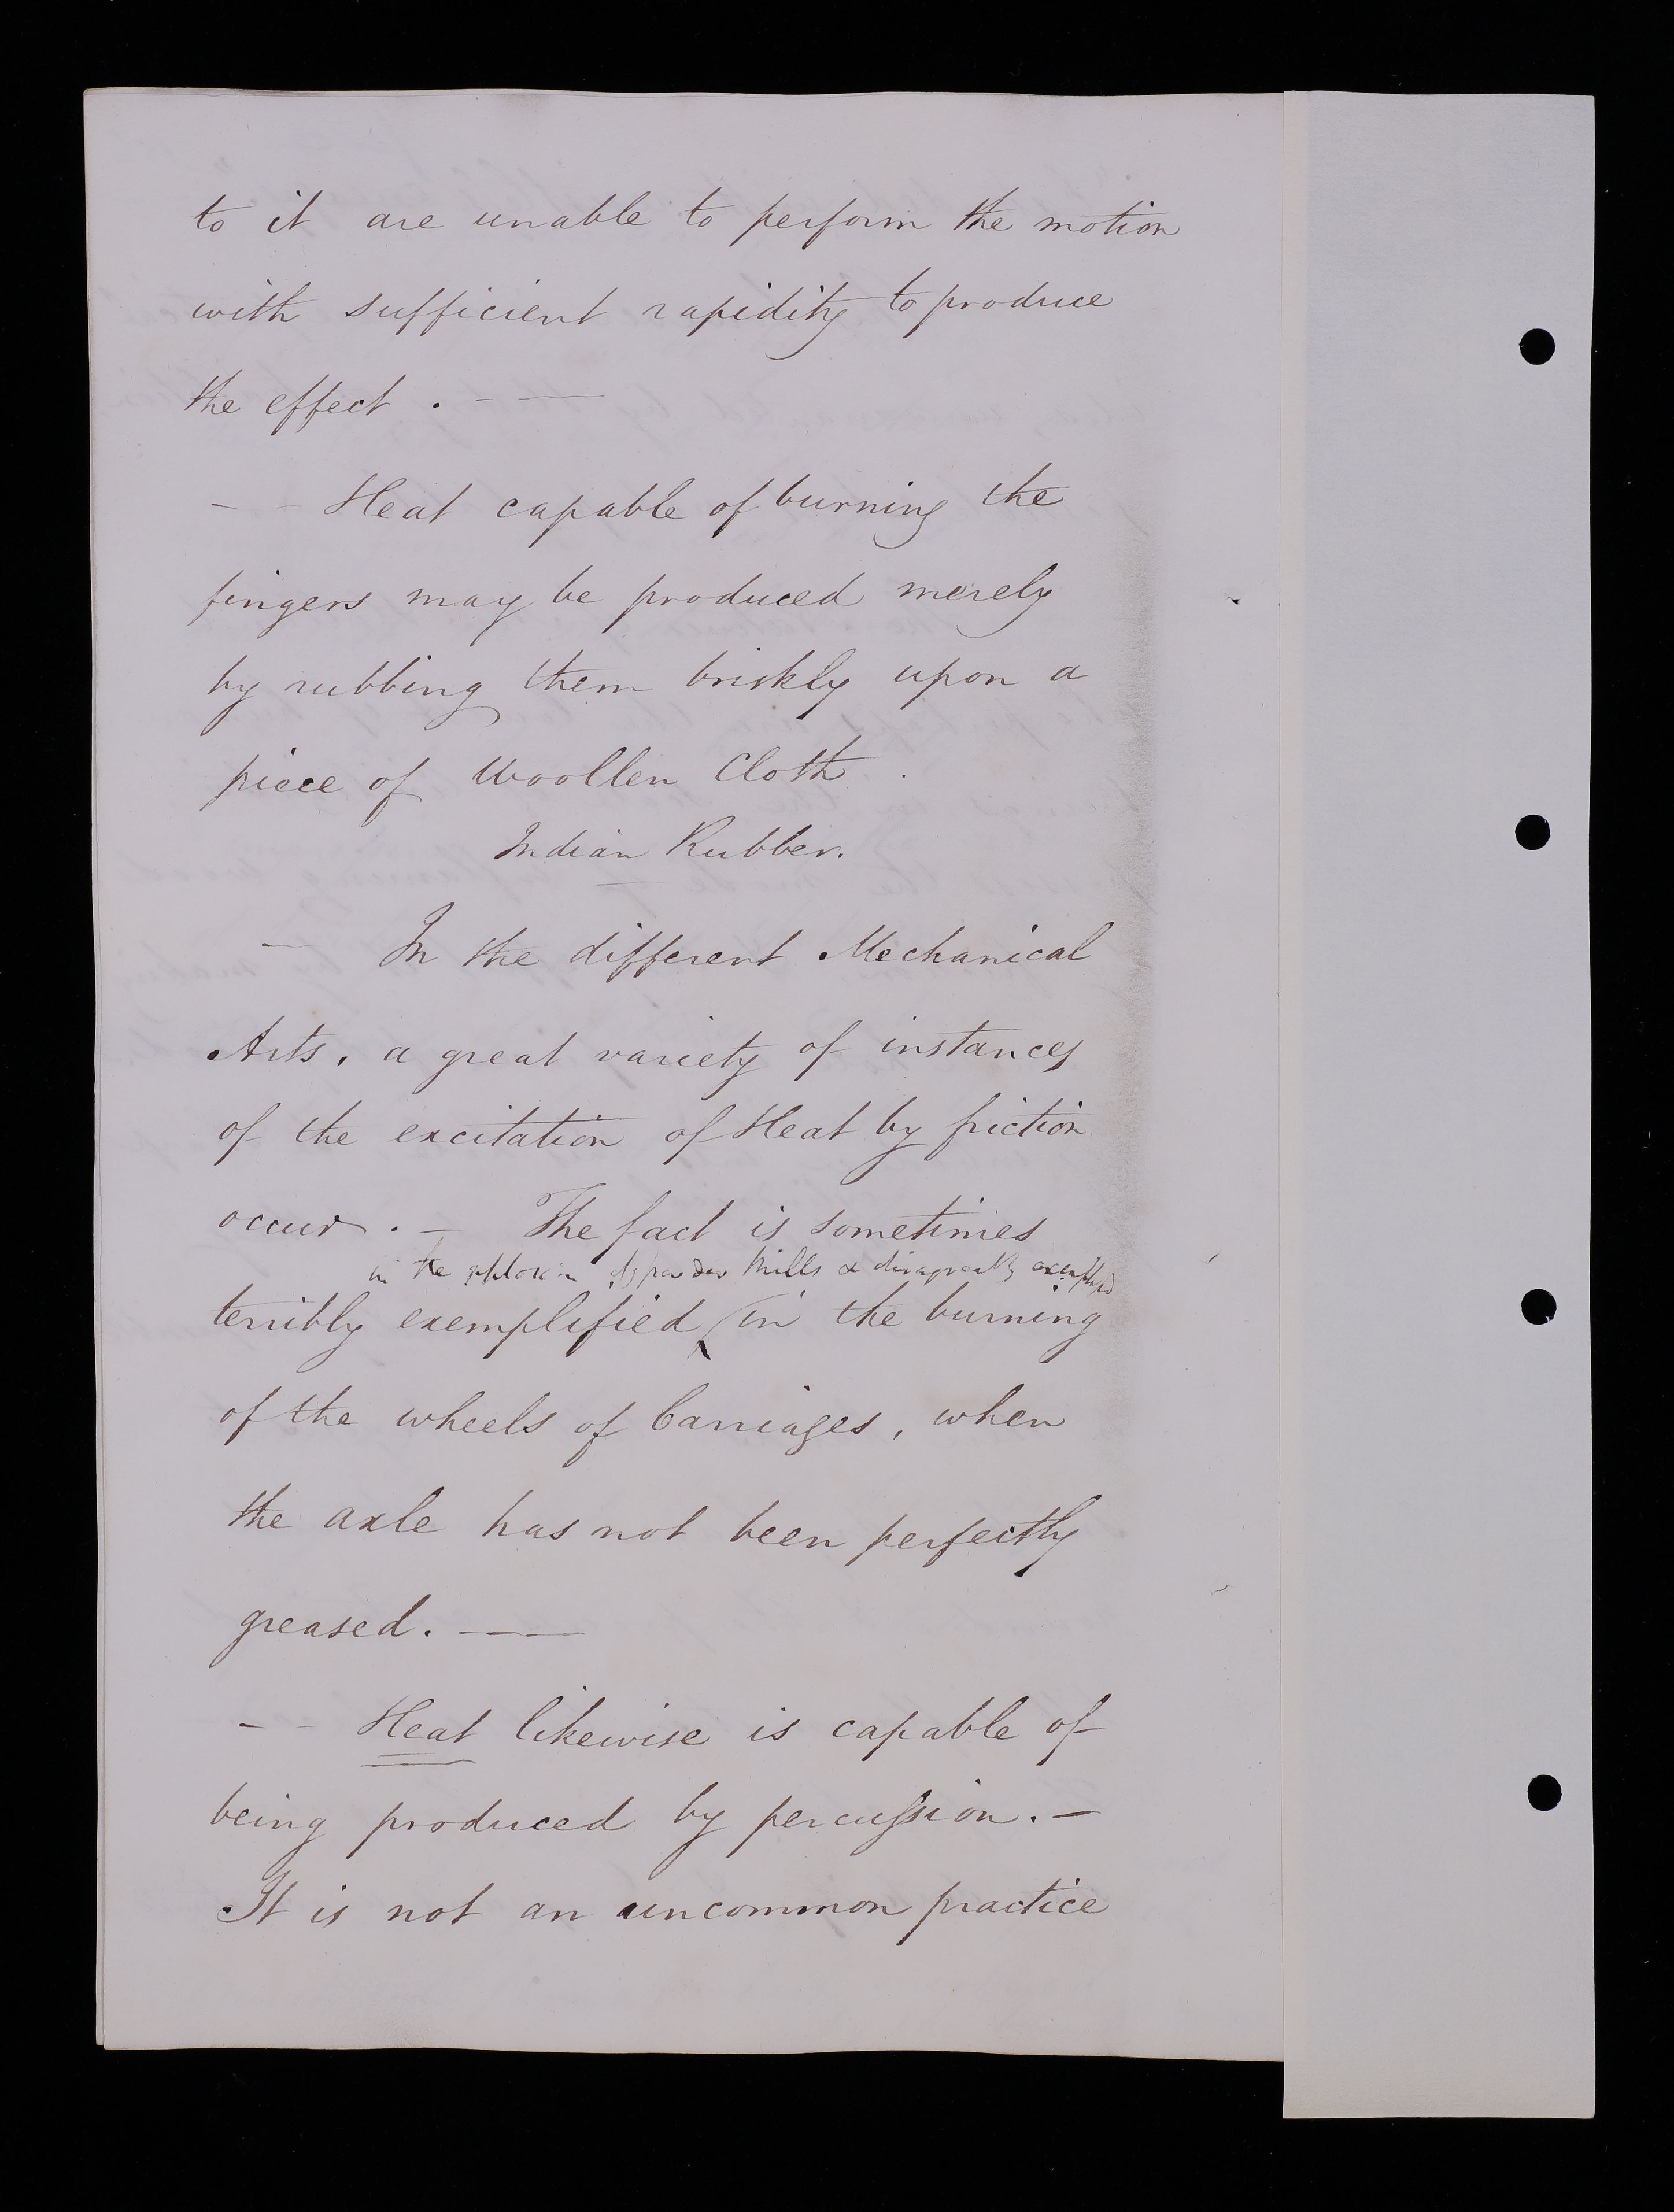 to it are unable to perform the motion
with sufficient rapidity to produce
the effect . - —
- - Heat capable of burning the
fingers may be produced merely
by rubbing them briskly upon a
piece of Woollen Cloth .
Indian Rubber.
— In the different Mechanical
Arts, a great variety of instances
of the excitation of Heat by friction
occur . — The fact is sometimes
in the explosion of powder Mills & disagreeably exemplified
terribly exemplified in the burning
of the wheels of Carriages, when
the axle has not been perfectly
greased. —
- - Heat likewise is capable of
being produced by percussion. —
It is not an uncommon practice